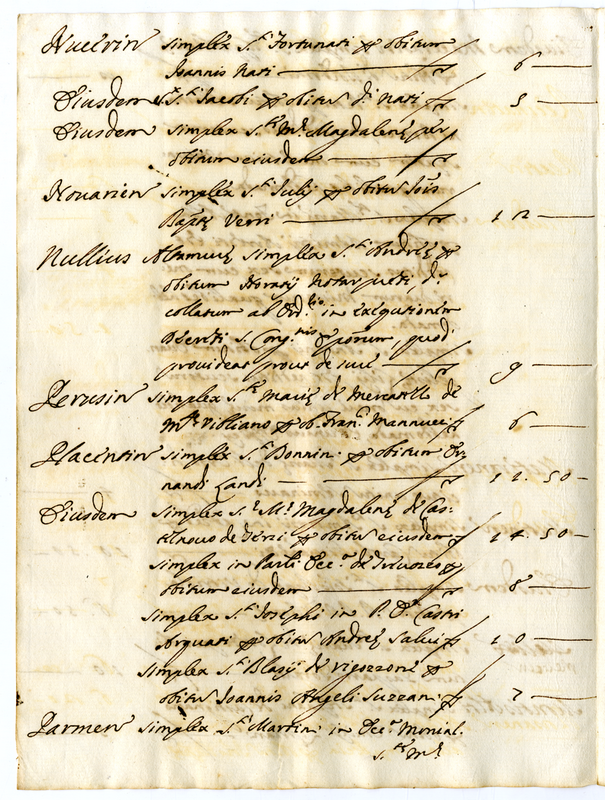 Nucerin simplex S.ti Fortunati p obitum
Ioannis Nati 6
Eiusdem S.ti Iacobi p obitus d. Nati 5
Eiusdem simplex S.tę Mę Magdalenę per
obitum eiusdem
Nouarien simplex S.ti Iulij p obitus Iois
Baptę Verri 12
Nullius Altamurę simplex S.ti Andreę p
obitum Horatij d.
collatum ab Ord.rio in exequtionem
Decreti S. Cong.nis Eporum, quod
prouideat prout de iure 9
Perusin simplex S.tę Marię de Mercatello de
M.te Vibliano p ob. Fran.ci Mannucci 6
Placentin simplex S.ti Donnin. p obitum
nandi Landi 12.50
Eiusdem simplex S. Mę Magdalenę de Cas:
p obitus eiusdem 14.50
simplex in Parli Ecc.a de p
obitum eiusdem 8
simplex S.ti Iosephi in P. E. Castri
Arquati p obitus Andreę Salui 10
simplex S.ti Blasij de Vigozzone p
obitus Ioannis Angeli Suzzani 7
Parmen simplex S.ti Martini in Ecc.a Monial.
S.tę M.ę